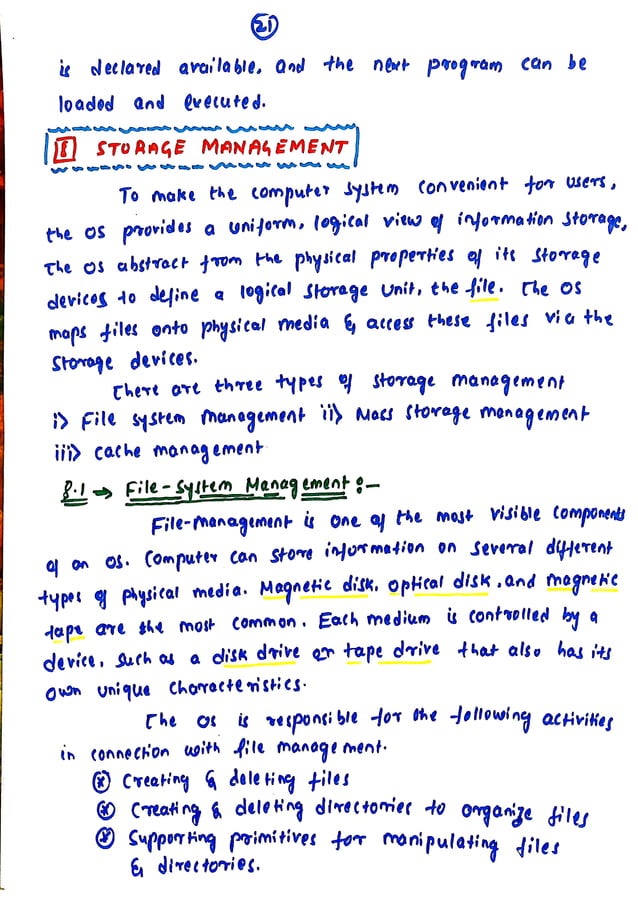 21
is declared available, and the next program can be
loaded and executed.
8 STORAGE MANAGEMENT
To make the computer system convenient for users,
the OS provides a uniform, logical view of information storage,
The OS abstract from the physical properties of its storage
devices to define a logical storage unit, the file. The OS
maps files onto physical media & access these files via the
storage devices.
There are three types of storage management
i> File system management ii> Mass storage management
iii> cache management
8.1 → File-System Management :-
File-management is one of the most visible components
of an OS. Computer can store information on several different
types of physical media. Magnetic disk, optical disk, and magnetic
tape are the most common. Each medium is controlled by a
device, such as a disk drive or tape drive that also has its
own unique characteristics.
The OS is responsible for the following activities
in connection with file management.
* Creating & deleting files
* Creating & deleting directories to organize files
* Supporting primitives for manipulating files
& directories.